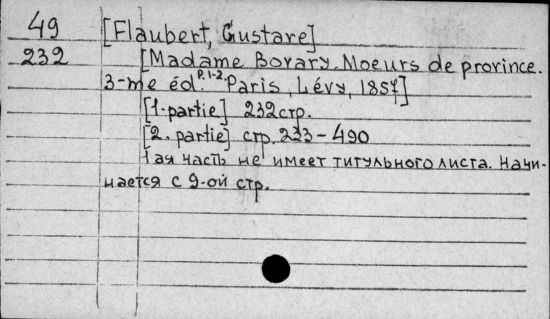 49 [Flaubert, Gustave]
232 [Madame Bovary. Moeurs de province.
3-me éd. P. 1-2. Paris, Lévy, 1857]
[1-partie] 232 стр.
[2. partie] стр. 233-490
1 ая часть не имеет титульного листа. Начи-
нается с 9-ой стр.